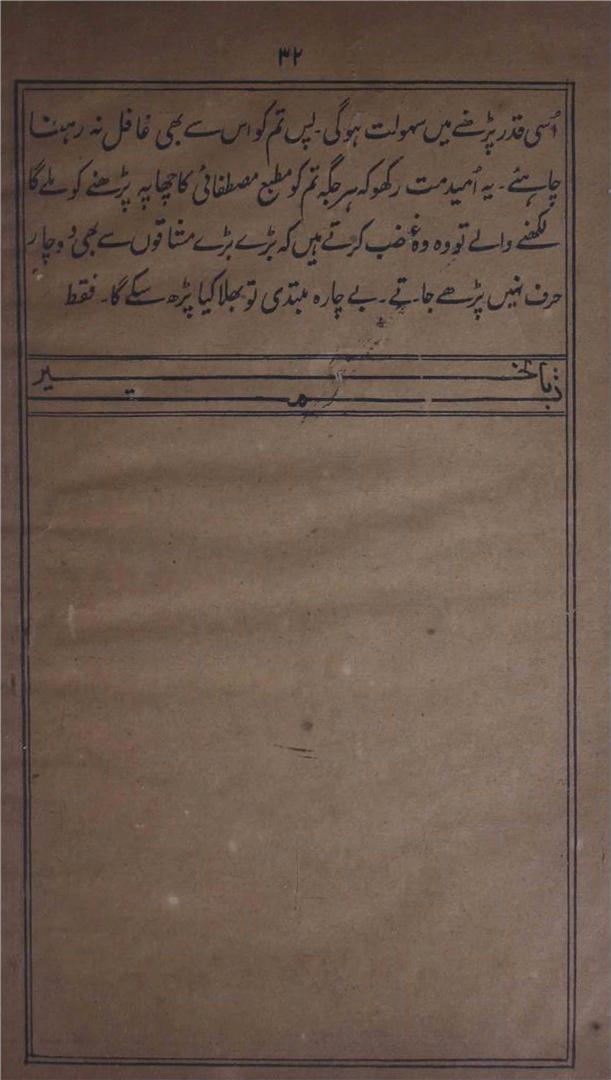 ۳۲
اُسی قدر پڑھنے میں سہولت ہوگی۔ پس تم کو اس سے بھی غافل نہ رہنا
چاہئے۔ یہ اُمید مت رکھو کہ ہر جگہ تم کو مطبع مصطفائی کا چھاپہ پڑھنے کو ملے گا
لکھنے والے تو وہ وہ غضب کرتے ہیں کہ بڑے بڑے مشاقوں سے بھی دو چار
حرف نہیں پڑھے جاتے۔ بے چارہ مبتدی تو بھلا کیا پڑھ سکے گا۔ فقط
تمت بالخیر